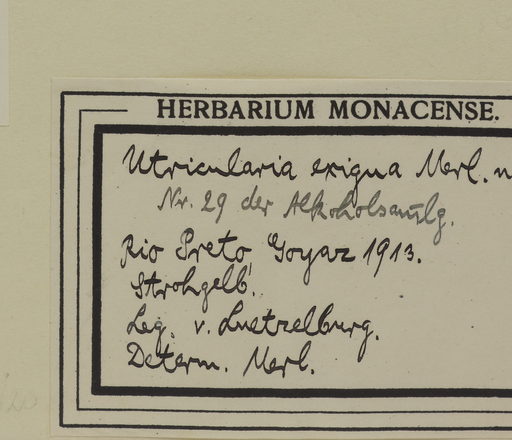 HERBARIUM MONACENSE.
Utricularia exigua Merl. n
Nr. 29 der Alkoholsamlg.
Rio Preto, Goyaz 1913.
Strohgelb.
Leg. v. Luetzelburg.
Determ. Merl.